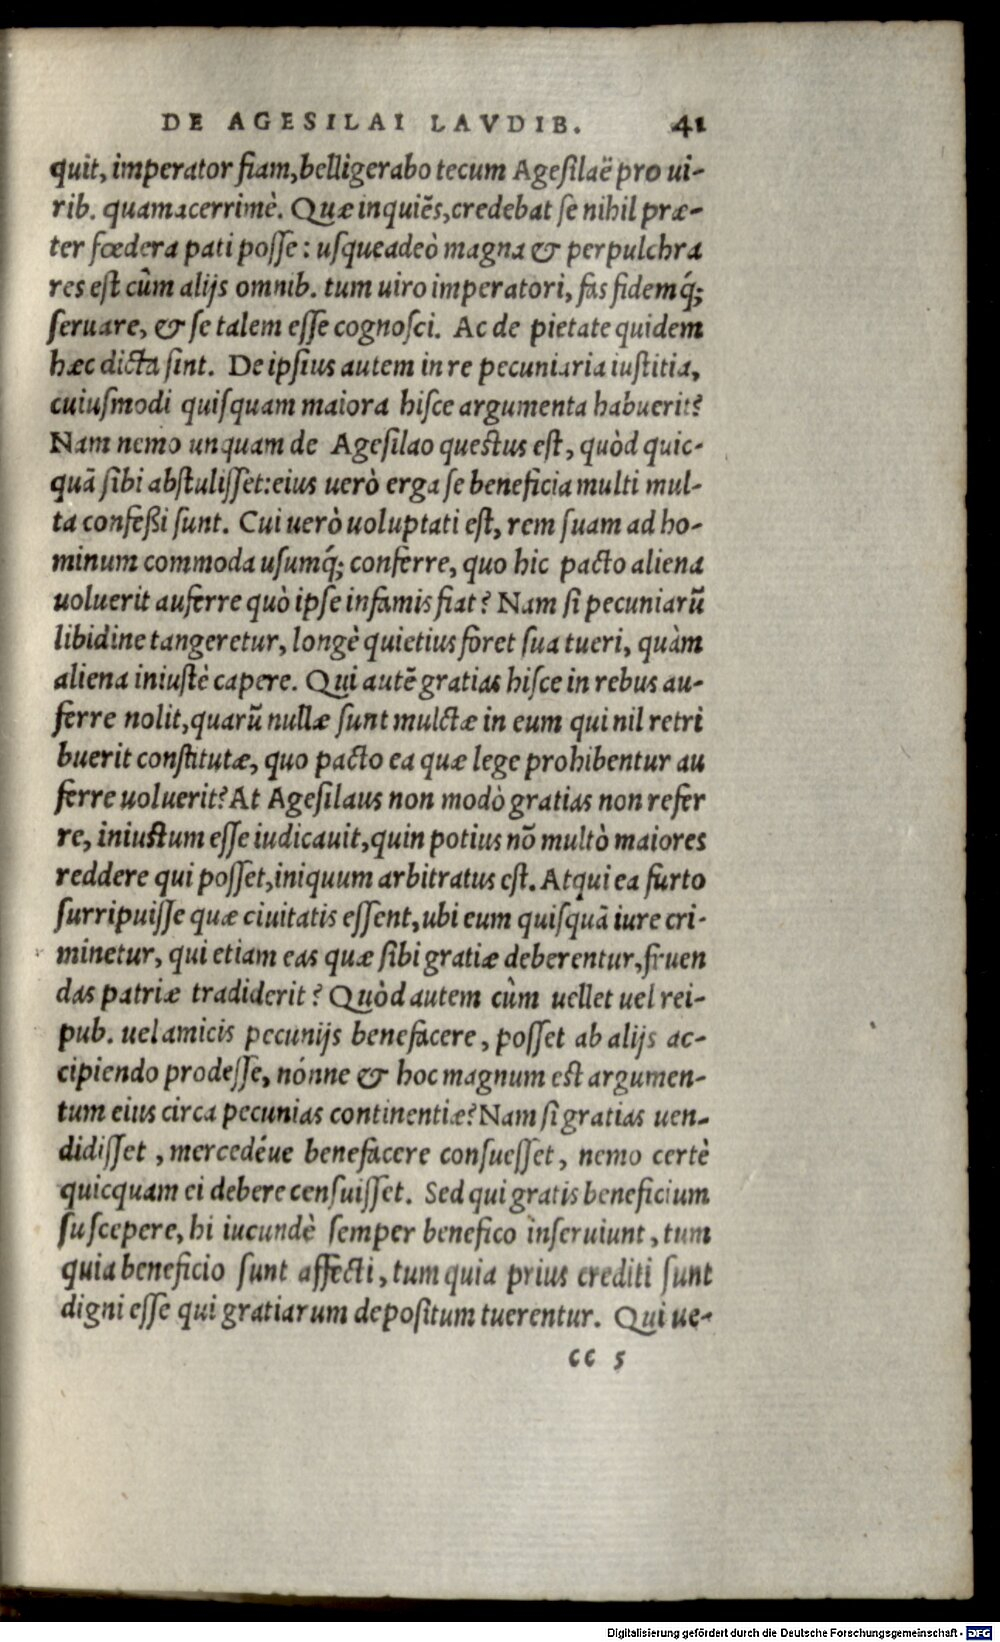 DE AGESILAI LAVDIB. 41
quit, imperator fiam, belligerabo tecum Agesilaë pro ui-
rib. quamacerrimè. Quæ inquiēs, credebat se nihil præ-
ter fœdera pati posse: usqueadeò magna & perpulchra
res est cûm alijs omnib. tum uiro imperatori, fas fidemq́;
seruare, & se talem esse cognosci. Ac de pietate quidem
hæc dicta sint. De ipsius autem in re pecuniaria iustitia,
cuiusmodi quisquam maiora hisce argumenta habuerit?
Nam nemo unquam de Agesilao questus est, quòd quic-
quā sibi abstulisset: eius uerò erga se beneficia multi mul-
ta confeßi sunt. Cui uerò uoluptati est, rem suam ad ho-
minum commoda usumq́; conferre, quo hic pacto aliena
uoluerit auferre quò ipse infamis fiat? Nam si pecuniarū
libidine tangeretur, longè quietius foret sua tueri, quàm
aliena iniustè capere. Qui autē gratias hisce in rebus au-
ferre nolit, quarū nullæ sunt mulctæ in eum qui nil retri
buerit constitutæ, quo pacto ea quæ lege prohibentur au
ferre uoluerit? At Agesilaus non modò gratias non refer
re, iniustum esse iudicauit, quin potius nō multò maiores
reddere qui posset, iniquum arbitratus est. Atqui ea furto
surripuisse quæ ciuitatis essent, ubi eum quisquā iure cri-
minetur, qui etiam eas quæ sibi gratiæ deberentur, fruen
das patriæ tradiderit? Quòd autem cùm uellet uel rei-
pub. uel amicis pecunijs benefacere, posset ab alijs ac-
cipiendo prodesse, nónne & hoc magnum est argumen-
tum eius circa pecunias continentiæ? Nam si gratias uen-
didisset, mercedéue benefacere consuesset, nemo certè
quicquam ei debere censuisset. Sed qui gratis beneficium
suscepere, hi iucundè semper benefico inseruiunt, tum
quia beneficio sunt affecti, tum quia prius crediti sunt
digni esse qui gratiarum depositum tuerentur. Qui ue-
cc 5
Digitalisierung gefördert durch die Deutsche Forschungsgemeinschaft - DFG